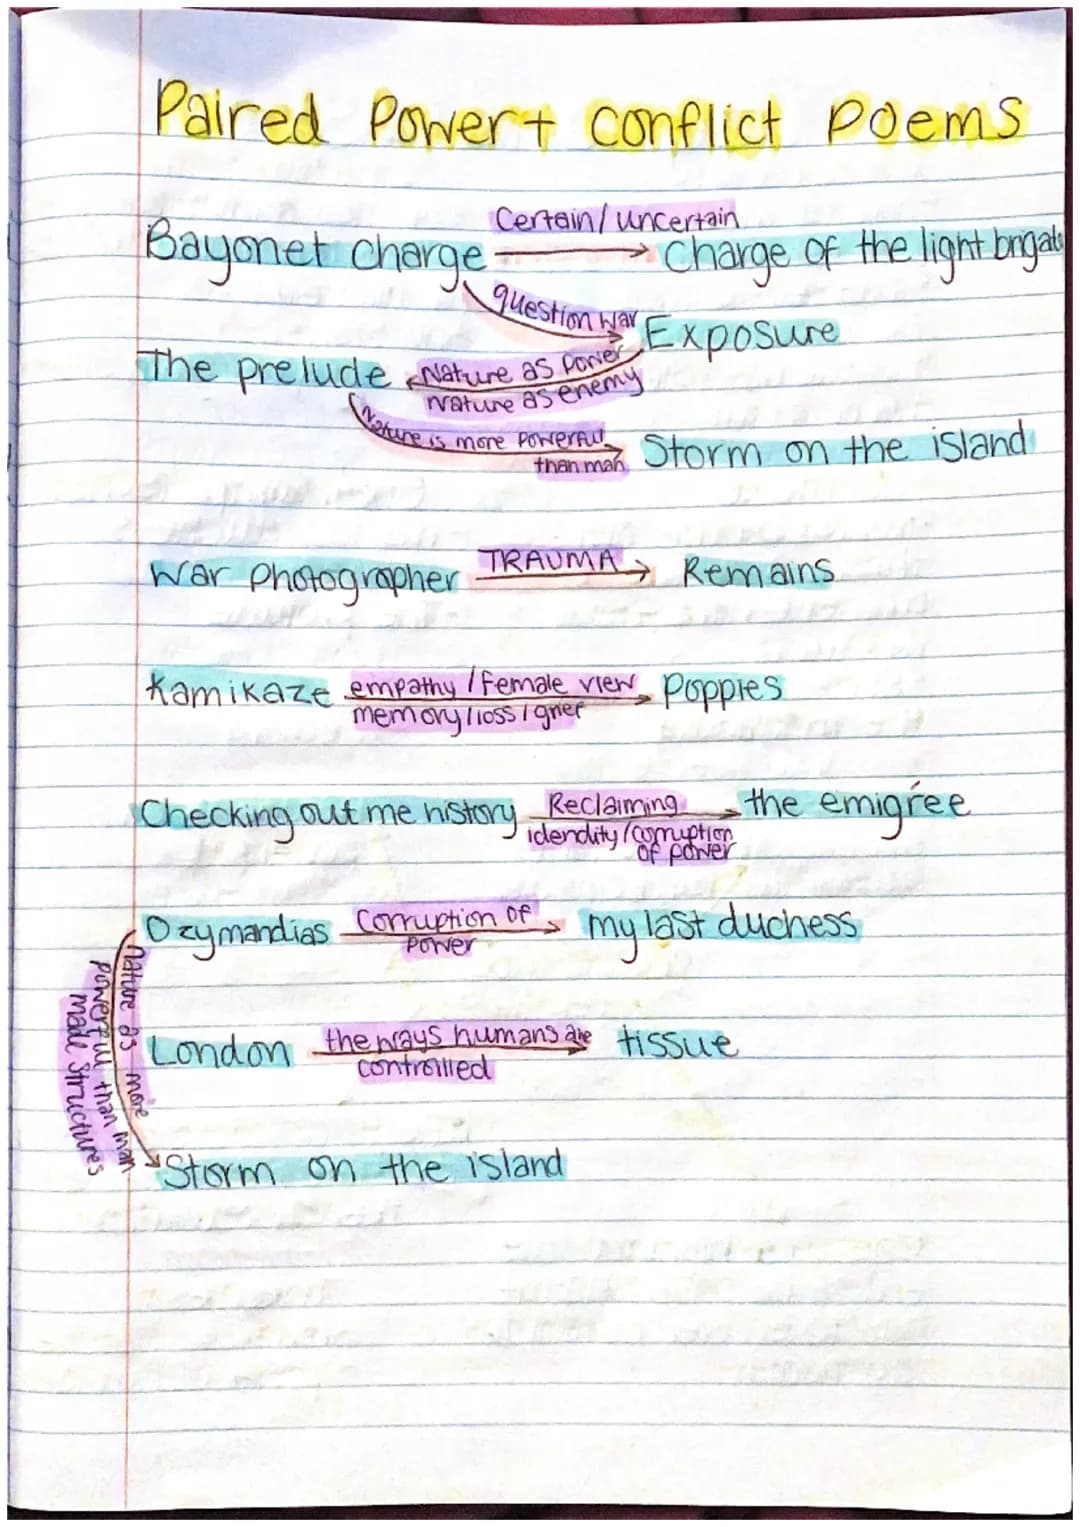 Paired Power+ Conflict Poems
Certain/uncertain
Bayonet charge → Charge of the light brigade
question war
Exposure
The prelude
Nature as power
Nature as enemy
Nature is more powerful
than man
Storm on the island
War Photographer
TRAUMA
Remains
Kamikaze
empathy / Female view
memory/loss/grief
Poppies
Checking out me history
Reclaiming
idendity/corruption
of power
the emigrée
Ozymandias
Corruption of
power
my last duchess
Nature as more
powerful than man
made structures
London
the ways humans are
controlled
tissue
Storm on the island